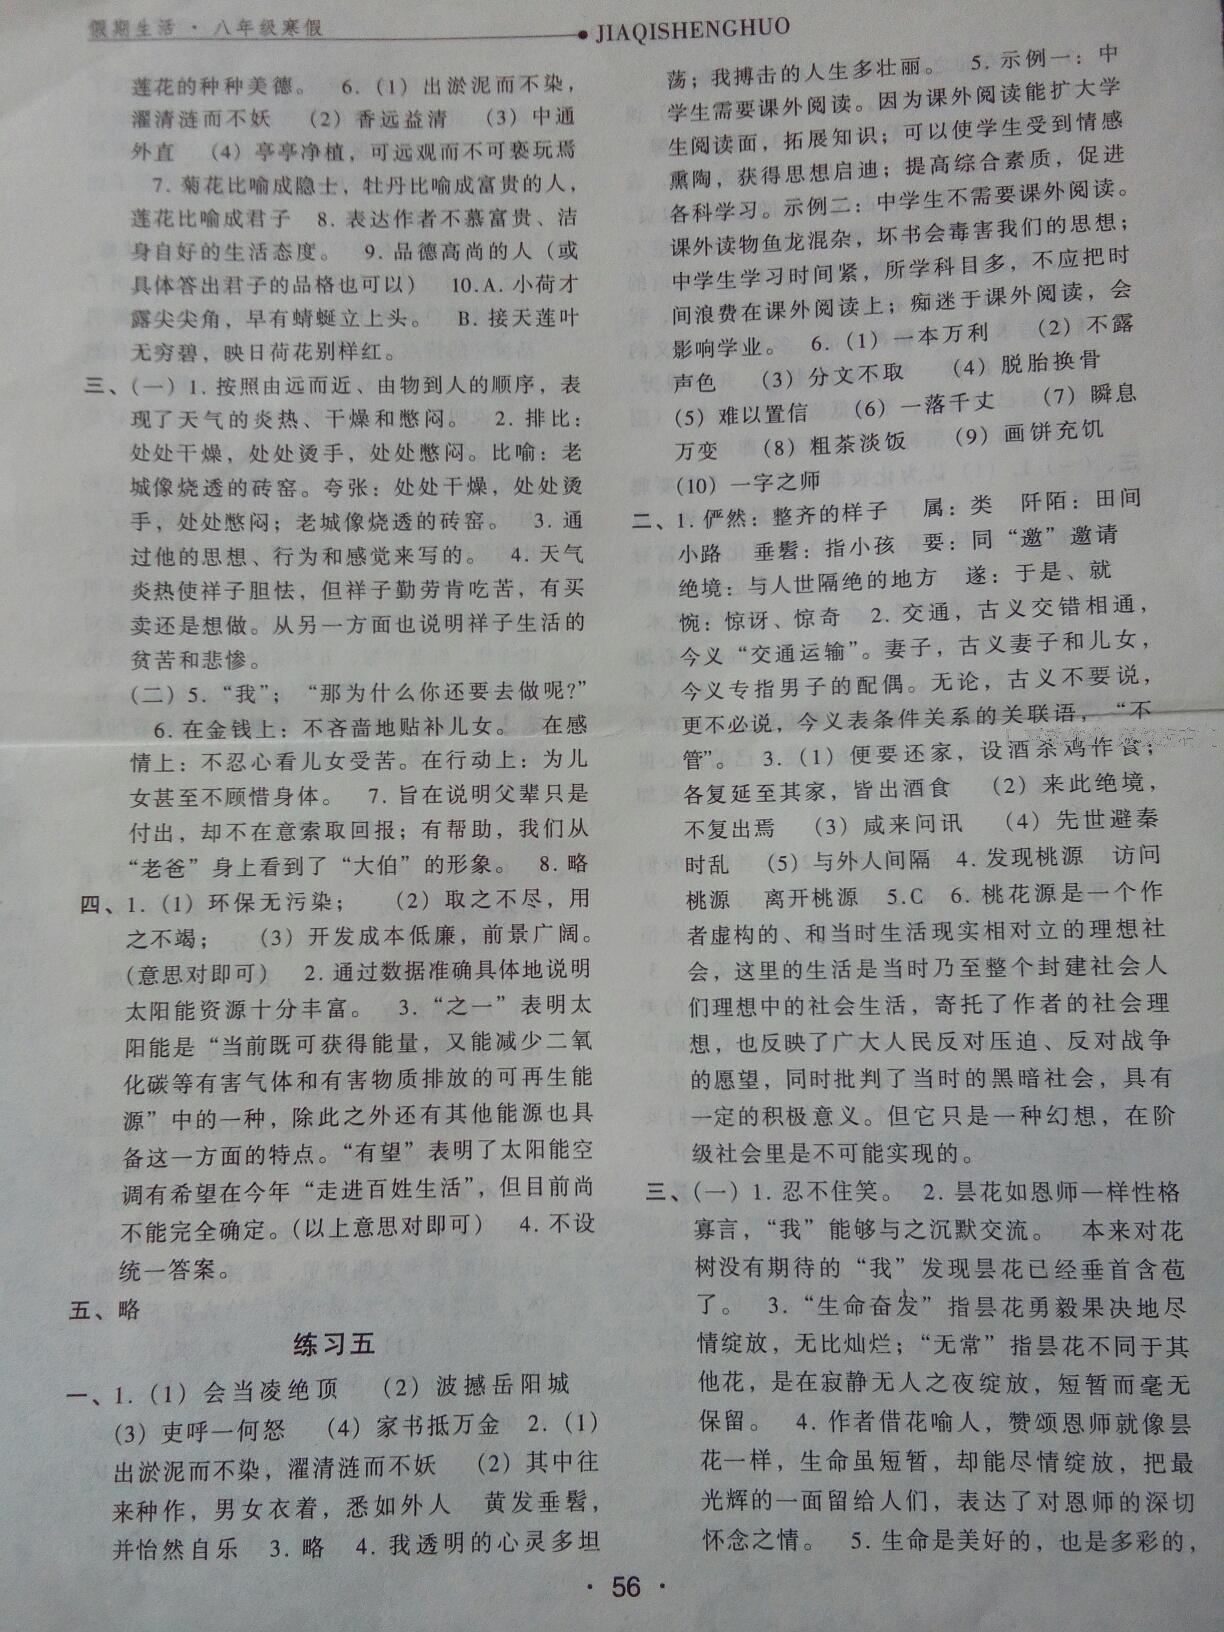 假期生活·八年级寒假
JIAQISHENGHUO
莲花的种种美德。 6.(1)出淤泥而不染,
濯清涟而不妖 (2)香远益清 (3)中通
外直 (4)亭亭净植,可远观而不可亵玩焉
7.菊花比喻成隐士,牡丹比喻成富贵的人,
莲花比喻成君子 8.表达作者不慕富贵、洁
身自好的生活态度。 9.品德高尚的人(或
具体答出君子的品格也可以) 10.A.小荷才
露尖尖角,早有蜻蜓立上头。 B.接天莲叶
无穷碧,映日荷花别样红。
三、(一)1.按照由远而近、由物到人的顺序,表
现了天气的炎热、干燥和憋闷。 2.排比:
处处干燥,处处烫手,处处憋闷。比喻:老
城像烧透的砖窑。夸张:处处干燥,处处烫
手,处处憋闷;老城像烧透的砖窑。 3.通
过他的思想、行为和感觉来写的。 4.天气
炎热使祥子胆怯,但祥子勤劳肯吃苦,有买
卖还是想做。从另一方面也说明祥子生活的
贫苦和悲惨。
(二)5.“我”;“那为什么你还要去做呢?”
6.在金钱上:不吝啬地贴补儿女。 在感
情上:不忍心看儿女受苦。在行动上:为儿
女甚至不顾惜身体。 7.旨在说明父辈只是
付出,却不在意索取回报;有帮助,我们从
“老爸”身上看到了“大伯”的形象。 8.略
四、1.(1)环保无污染; (2)取之不尽,用
之不竭; (3)开发成本低廉,前景广阔。
(意思对即可) 2.通过数据准确具体地说明
太阳能资源十分丰富。 3.“之一”表明太
阳能是“当前既可获得能量,又能减少二氧
化碳等有害气体和有害物质排放的可再生能
源”中的一种,除此之外还有其他能源也具
备这一方面的特点。“有望”表明了太阳能空
调有希望在今年“走进百姓生活”,但目前尚
不能完全确定。(以上意思对即可) 4.不设
统一答案。
五、略
练习五
一、1.(1)会当凌绝顶 (2)波撼岳阳城
(3)吏呼一何怒 (4)家书抵万金 2.(1)
出淤泥而不染,濯清涟而不妖 (2)其中往
来种作,男女衣着,悉如外人 黄发垂髫,
并怡然自乐 3.略 4.我透明的心灵多坦
荡;我搏击的人生多壮丽。 5.示例一:中
学生需要课外阅读。因为课外阅读能扩大学
生阅读面,拓展知识;可以使学生受到情感
熏陶,获得思想启迪;提高综合素质,促进
各科学习。示例二:中学生不需要课外阅读。
课外读物鱼龙混杂,坏书会毒害我们的思想;
中学生学习时间紧,所学科目多,不应把时
间浪费在课外阅读上;痴迷于课外阅读,会
影响学业。 6.(1)一本万利 (2)不露
声色 (3)分文不取 (4)脱胎换骨
(5)难以置信 (6)一落千丈 (7)瞬息
万变 (8)粗茶淡饭 (9)画饼充饥
(10)一字之师
二、1.俨然:整齐的样子 属:类 阡陌:田间
小路 垂髫:指小孩 要:同“邀”邀请
绝境:与人世隔绝的地方 遂:于是、就
惋:惊讶、惊奇 2.交通,古义交错相通,
今义“交通运输”。妻子,古义妻子和儿女,
今义专指男子的配偶。无论,古义不要说,
更不必说,今义表条件关系的关联语,“不
管”。 3.(1)便要还家,设酒杀鸡作食;
各复延至其家,皆出酒食 (2)来此绝境,
不复出焉 (3)咸来问讯 (4)先世避秦
时乱 (5)与外人间隔 4.发现桃源 访问
桃源 离开桃源 5.C 6.桃花源是一个作
者虚构的、和当时生活现实相对立的理想社
会,这里的生活是当时乃至整个封建社会人
们理想中的社会生活,寄托了作者的社会理
想,也反映了广大人民反对压迫、反对战争
的愿望,同时批判了当时的黑暗社会,具有
一定的积极意义。但它只是一种幻想,在阶
级社会里是不可能实现的。
三、(一)1.忍不住笑。 2.昙花如恩师一样性格
寡言,“我”能够与之沉默交流。 本来对花
树没有期待的“我”发现昙花已经垂首含苞
了。 3.“生命奋发”指昙花勇毅果决地尽
情绽放,无比灿烂;“无常”指昙花不同于其
他花,是在寂静无人之夜绽放,短暂而毫无
保留。 4.作者借花喻人,赞颂恩师就像昙
花一样,生命虽短暂,却能尽情绽放,把最
光辉的一面留给人们,表达了对恩师的深切
怀念之情。 5.生命是美好的,也是多彩的,
·56·